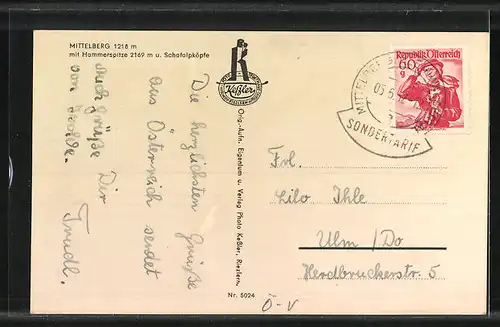 MITTELBERG 1218 m
mit Hammerspitze 2169 m u. Schafalpköpfe
Die herzlichsten Grüße
aus Österreich sendet
Auch Grüße Dir
von
Trudl.
Keßler
Orig.-Aufn. Eigentum u. Verlag Photo Keßler, Riezlern.
Nr. 5024
Republik Österreich
60
g
MITTELBERG
SONDERTARIF
Frl.
Lilo Ihle
Ulm/Do
Herdbruckerstr. 5
Ö-V